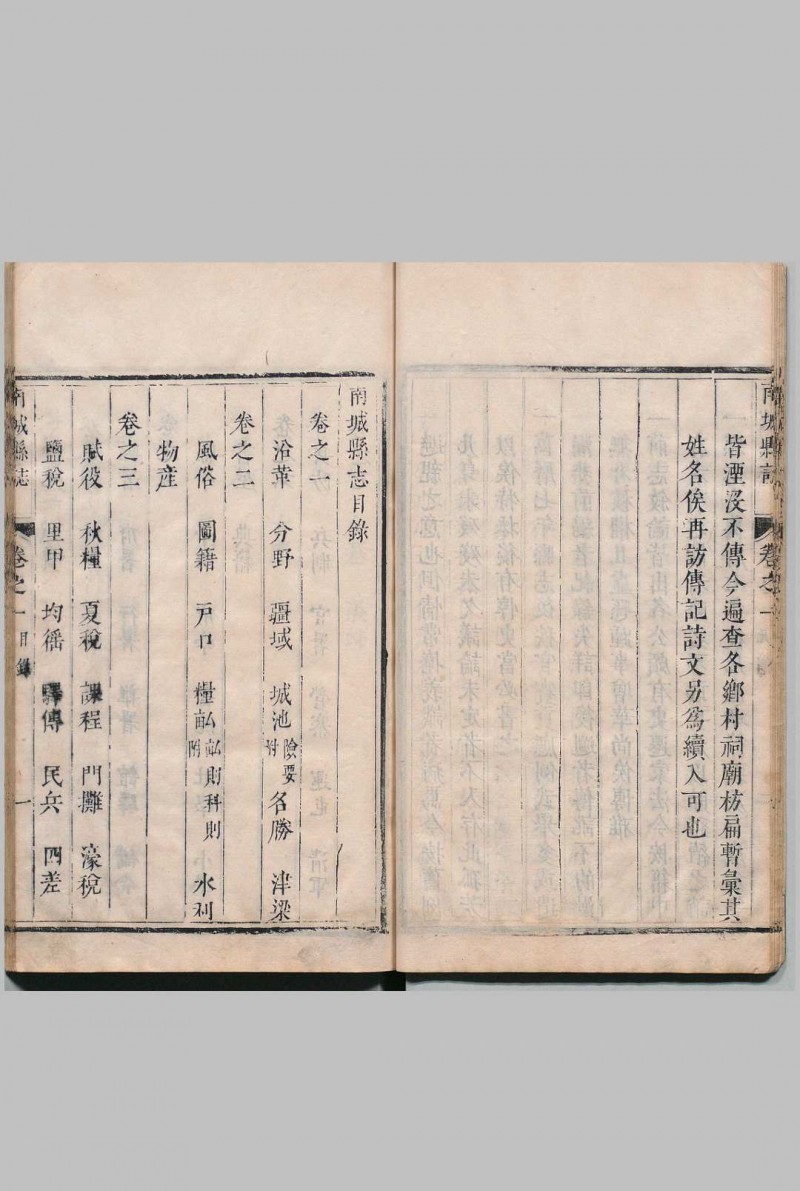 南城縣志
卷之一
皆湮沒不傳今遍查各鄉村祠廟枋扁暫彙其
姓名俟再訪傳記詩文另爲續入可也
南城縣志目錄
卷之一
沿革 分野 疆域 城池 險要附 名勝 津梁
卷之二
風俗 圖籍 戶口 糧畝 畝則科則附 水利
物産
卷之三
賦役 秋糧 夏稅 課程 門攤 濠稅
鹽稅 里甲 均徭 驛傳 民兵 四差
南城縣誌
卷之一 目錄
一